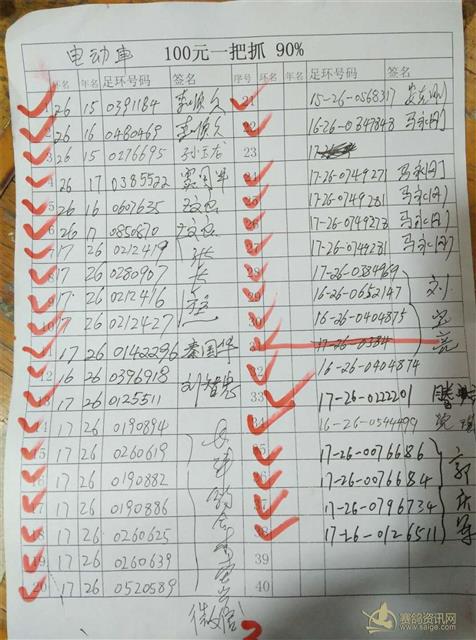 电动车 100元一把抓 90%
环名 年名 足环号码 签名 序号 环名 年名 足环号码 签名
1 26 15 0391184 21 15-26-0568317
2 26 16 0480469 22 16-26-0347848 马永刚
3 26 15 0276695 孙玉龙 23
4 26 17 0385522 24 17-26-0749271 马永刚
5 26 16 0607635 25 17-26-0749281 马永刚
6 26 17 0850820 26 17-26-0749273 马永刚
7 17 26 0212419 27 17-26-0749231 马永刚
8 17 26 0280907 28 17-26-0384969
9 17 26 0212416 29 16-26-0652147 刘
10 17 26 0212427 30 16-26-0404875
11 17 26 0142296 秦国华 31 17-26-0384 亮
12 16 26 0396918 32 16-26-0404874
13 17 26 0125511 33 17-26-0122201
14 17 26 0190894 34 16-26-0544499
15 17 26 0260619 35 17-26-0076686
16 17 26 0190882 36 17-26-0076684 郭
17 17 26 0190886 37 17-26-0796734 庆
18 17 26 0260625 38 17-26-0126511 军
19 17 26 0260639 39
20 17 26 0520589 40
微信
赛鸽资讯网
www.saige.com